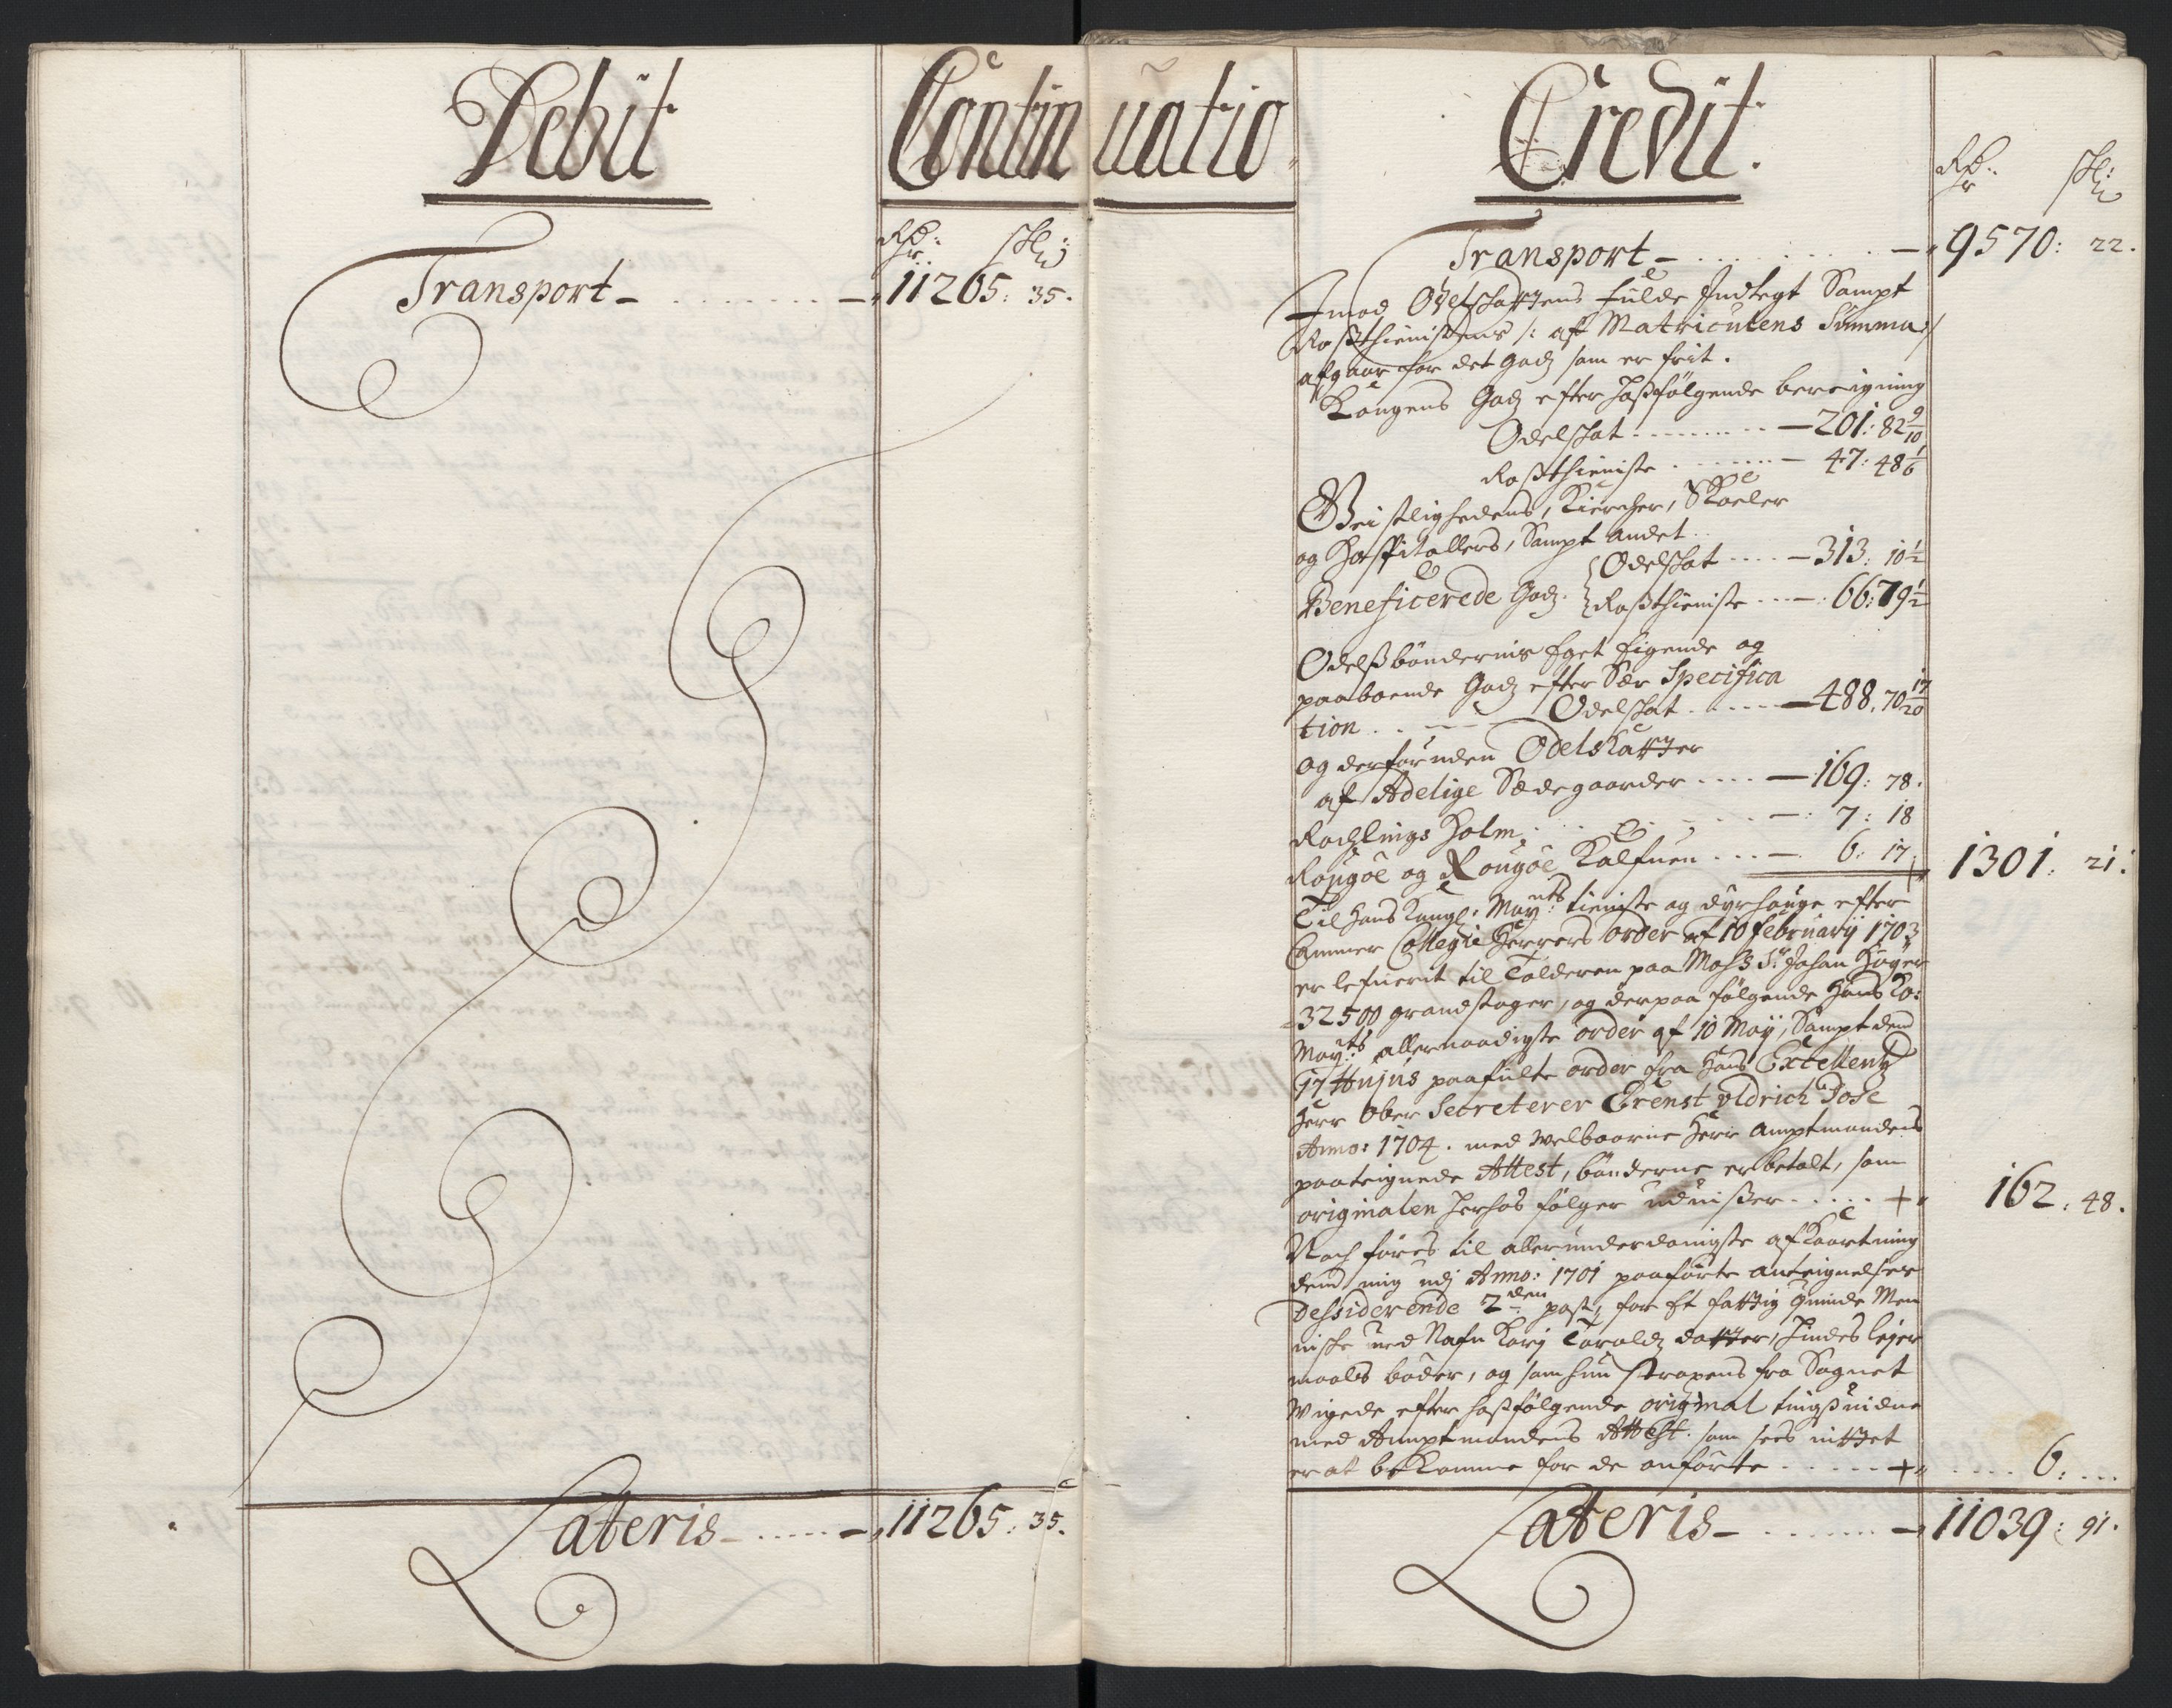 Debit
Continuatio
Credit.
Rdr: skl:
Transport - 11265: 35.
Lateris - 11265: 35.
Rdr: skl:
Transport - 9570: 22.
Imod Odelschattens fulde Indtegt Sampt
Rosthienistens /: aff Matriculens Summa /
afgaar for det Godz som er frit.
Kongens Godz efter hosfølgende bereigning
Odelschat - 201: 82 9/10
Rosthieniste - 47: 48 1/6
Geistlighedens, Kiercher, Skoeler
og Hospitallers, Sampt andet
Beneficerede Godz. { Odelschat - 313: 10 1/2
{ Rosthieniste - 66: 79 1/2
Odelsbøndernis Eget Eigende og
paaboende Godz efter Sær Specifica
tion Odelschat - 488. 70 17/20
og derforuden Odelskatter
af Adelige Sædegaarder - 169: 78.
Holm - 7: 18
Rougöe og Rougöe Kalfuen - 6: 17. 1301: 21.
Til Hans Kongl: Mayts: tieniste og efter
Cammer Collegie Herrers order af 10 february 1703
er lefuerit til Tolderen paa Moss Sr. Johan
32500 grandstager, og derpaa følgende Hans Ko:
Mayts: allernaadigste order af 10 May, Sampt dend
17 Hujus paafulte order fra Hans Excellentz
Herr Ober Secreterer Erenst Vldrich Dose
Anno: 1704. med Welbaarne Herr Amptmandens
paateignede Attest, bønderne er betalt, som
originalen herhos følger udviser + 162: 48.
Noch føres til allerunderdanigste afkaartning
dend mig udj Anno: 1701 paaførte anteignelser
Dessiderende 2den: post, for Et fattig quinde Men
niske ved Nafn Karj Taraldz datter, hindes leyer
maals bøder, og som hun strapens fra Sognet
Wigede efter hosfølgende original tingsvidne
med Amptmandens Attest. som sees intet
er at bekomme for de anførte + 6:
Lateris - 11039: 91.